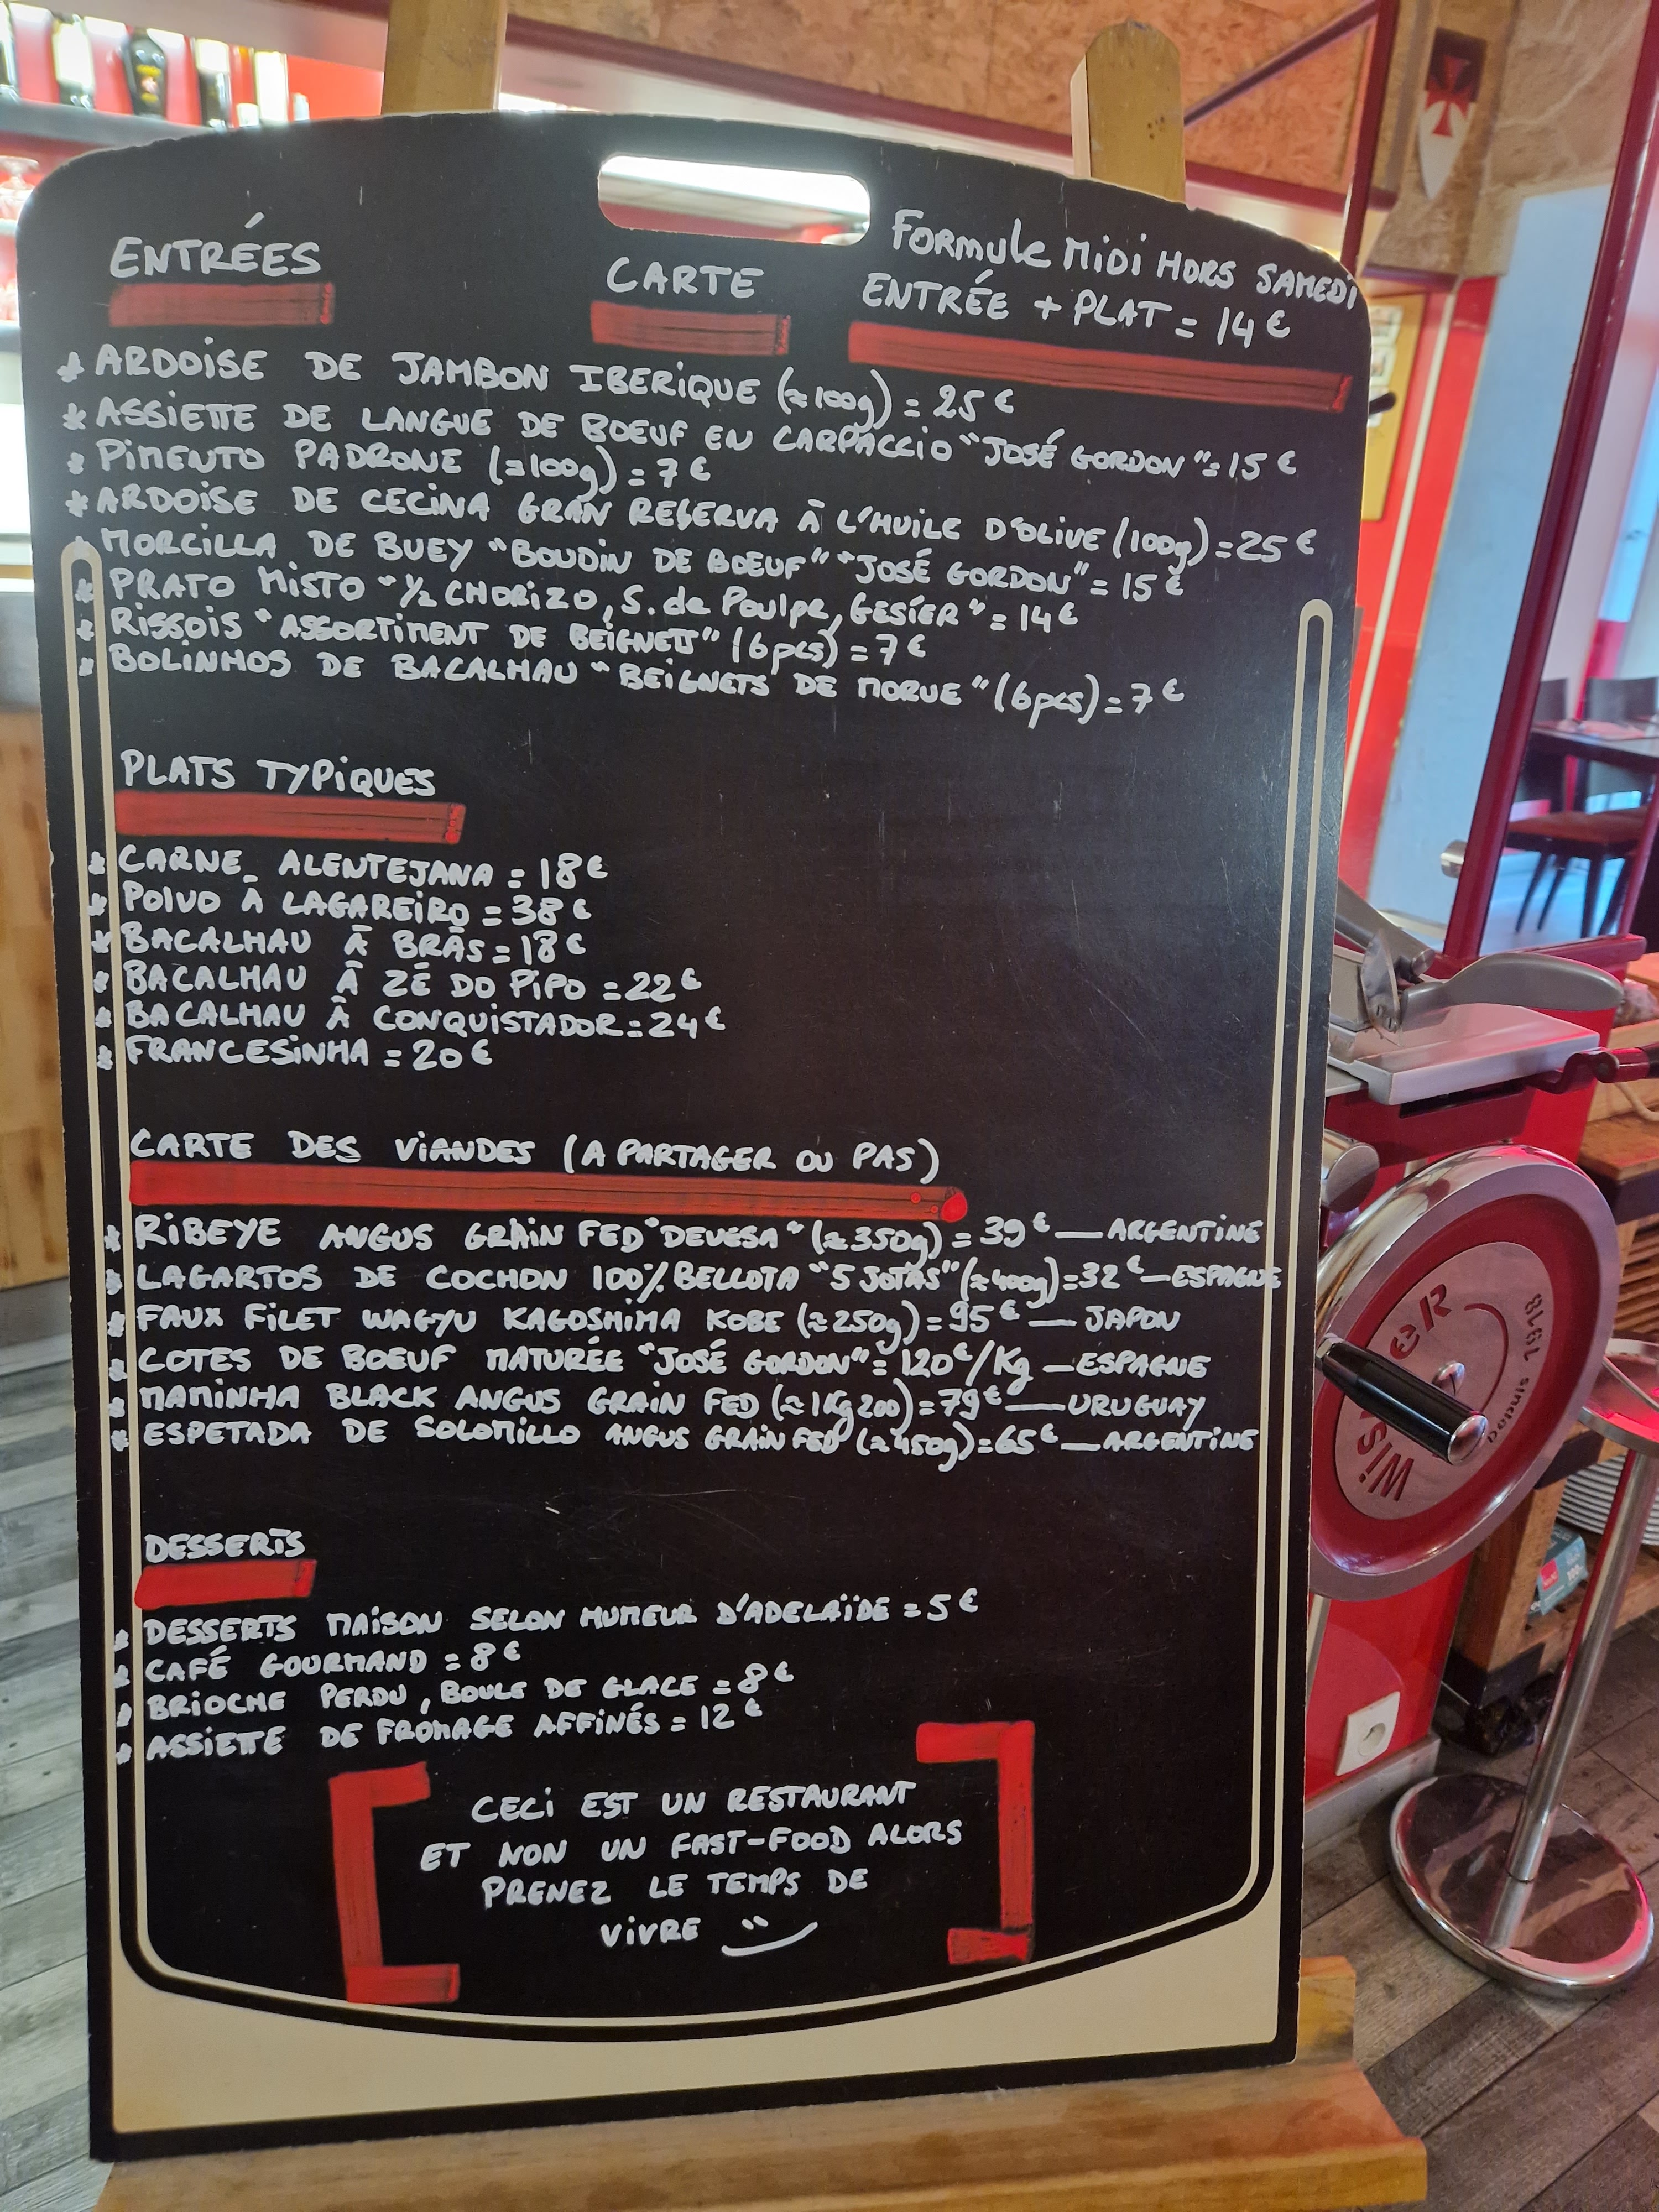 ENTRÉES
CARTE
FORMULE MIDI HORS SAMEDI
ENTRÉE + PLAT = 14€
* ARDOISE DE JAMBON IBERIQUE (≈100g) = 25€
* ASSIETTE DE LANGUE DE BOEUF EN CARPACCIO "JOSÉ GORDON" = 15€
* PIMENTO PADRONE (≈100g) = 7€
* ARDOISE DE CECINA GRAN RESERVA À L'HUILE D'OLIVE (100g) = 25€
* MORCILLA DE BUEY "BOUDIN DE BOEUF" "JOSÉ GORDON" = 15€
* PRATO MISTO "1/2 CHORIZO, S. de Poulpe, GESÍER" = 14€
* RISSOIS "ASSORTIMENT DE BEIGNETS" (6pcs) = 7€
* BOLINHOS DE BACALHAU "BEIGNETS DE MORUE" (6pcs) = 7€
PLATS TYPIQUES
* CARNE_ ALENTEJANA = 18€
* POLVO À LAGAREIRO = 38€
* BACALHAU À BRÀS = 18€
* BACALHAU À ZÉ DO PIPO = 22€
* BACALHAU À CONQUISTADOR = 24€
* FRANCESINHA = 20€
CARTE DES VIANDES (A PARTAGER OU PAS)
* RIBEYE ANGUS GRAIN FED "DEVESA" (≈350g) = 39€ — ARGENTINE
* LAGARTOS DE COCHON 100% BELLOTA "5 JOTAS" (≈400g) = 32€ — ESPAGNE
* FAUX FILET WAGYU KAGOSHIMA KOBE (≈250g) = 95€ — JAPON
* COTES DE BOEUF MATURÉE "JOSÉ GORDON" = 120€/Kg — ESPAGNE
* MAMINHA BLACK ANGUS GRAIN FED (≈1Kg200) = 79€ — URUGUAY
* ESPETADA DE SOLOMILLO ANGUS GRAIN FED (≈450g) = 65€ — ARGENTINE
DESSERTS
* DESSERTS MAISON SELON HUMEUR D'ADELAÏDE = 5€
* CAFÉ GOURMAND = 8€
* BRIOCHE PERDU, BOULE DE GLACE = 8€
* ASSIETTE DE FROMAGE AFFINÉS = 12€
CECI EST UN RESTAURANT
ET NON UN FAST-FOOD ALORS
PRENEZ LE TEMPS DE
VIVRE
Depuis 1918